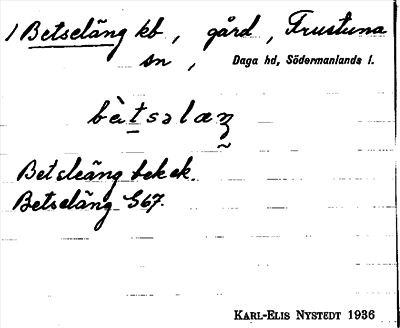 1 Betseläng kb, gård, Frustuna
sn, Daga hd, Södermanlands l.
bètsəlæŋ
Betsleäng bekek.
Betseläng G67.
KARL-ELIS NYSTEDT 1936